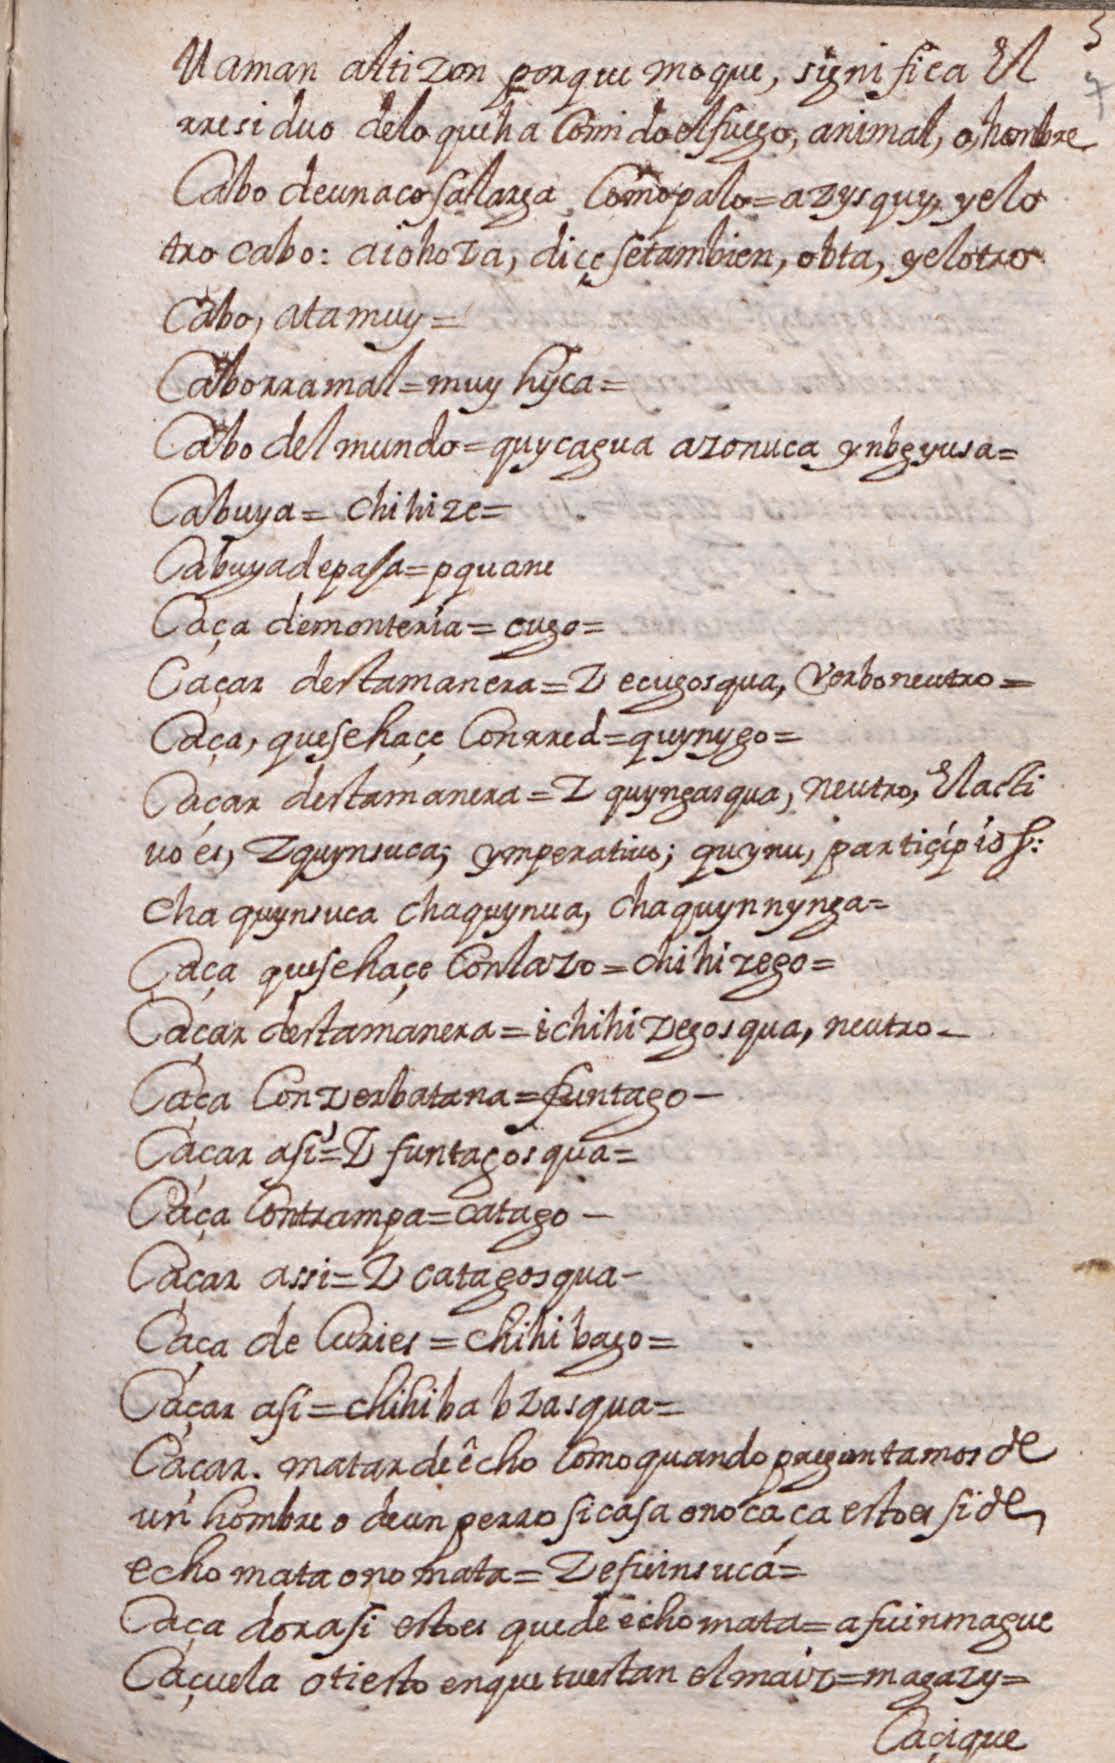 Uaman altizon porque moque, significa El
rresiduo delo que ha Comido el fuego, animal, o, honbre
Cabo de una cosa larga Como palo = azysquy, y el o
tro cabo: aiohoza, diçese tambien, obta, y el otro
Cabo, atamuy =
Cabo rramal = muy hỹca =
Cabo del mundo = quycagua azonuca ynbgyusa =
Cabuya = chihize =
Cabuya de paja = pquane
Caça de monteria = cugo =
Caçar desta manera = Z ecugosqua, Verbo neutro =
Caça, que se haçe Con rred = quynygo =
Caçar desta manera = Z quyngasqua, neutro, El acti
uo és, Zquynsuca; ymperatiuo; quynu, partiçipios:
cha quynsuca chaquynua, chaquynnynga =
Caça que se haçe Con lazo = chihizego =
Caçar desta manera = ichihizegosqua, neutro -
Caça Con zerbatana = funtago -
Caçar asi = Z funtagosqua =
Caça Con trampa = catago -
Caçar assi = Z catagosqua -
Caça de Curies = chihibago =
Caçar asi = chihiba bzasqua =
Caçar. matar de êcho Como quando preguntamos de
un hombre o de un perro si casa o no caça esto es si de
echo mata o no mata = Zefuinsucá =
Caçador asi esto es que de echo mata = afuinmague
Caçuela o tiesto en que tuestan el maiz = magazy =
Caçique